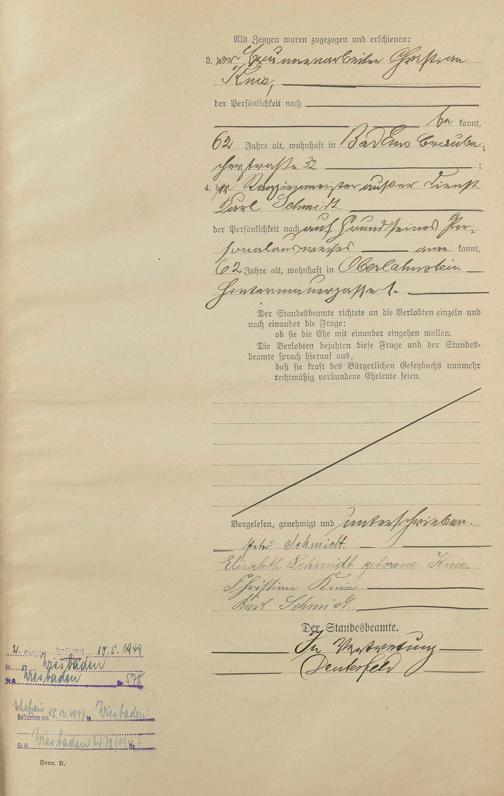 Als Zeugen waren zugezogen und erschienen:
3. der Brunnenarbeiter Christian
Knie,
der Persönlichkeit nach
be kannt,
62 Jahre alt, wohnhaft in Bad Ems Grauba-
cherstraße 32 ;
4. der Rangiermeister außer Dienst
Karl Schmidt
der Persönlichkeit nach auf Grund seines Per-
sonalausweises kannt,
62 Jahre alt, wohnhaft in Oberlahnstein
Hintermauergasse 1.
Der Standesbeamte richtete an die Verlobten einzeln und
nach einander die Frage:
ob sie die Ehe mit einander eingehen wollen.
Die Verlobten bejahten diese Frage und der Standes-
beamte sprach hierauf aus,
daß sie kraft des Bürgerlichen Gesetzbuchs nunmehr
rechtmäßig verbundene Eheleute seien.
Vorgelesen, genehmigt und unterschrieben.
Peter Schmidt.
Elisabeth Schmidt geborene Knie.
Christian Knie
Karl Schmidt.
Der Standesbeamte.
In Vertretung
17.5.1949
Wiesbaden
St.A. Wiesbaden Nr. 578
Ehefrau
Gestorben am 15.12.1947 in Wiesbaden
St.A. Wiesbaden Nr.
Form. B.